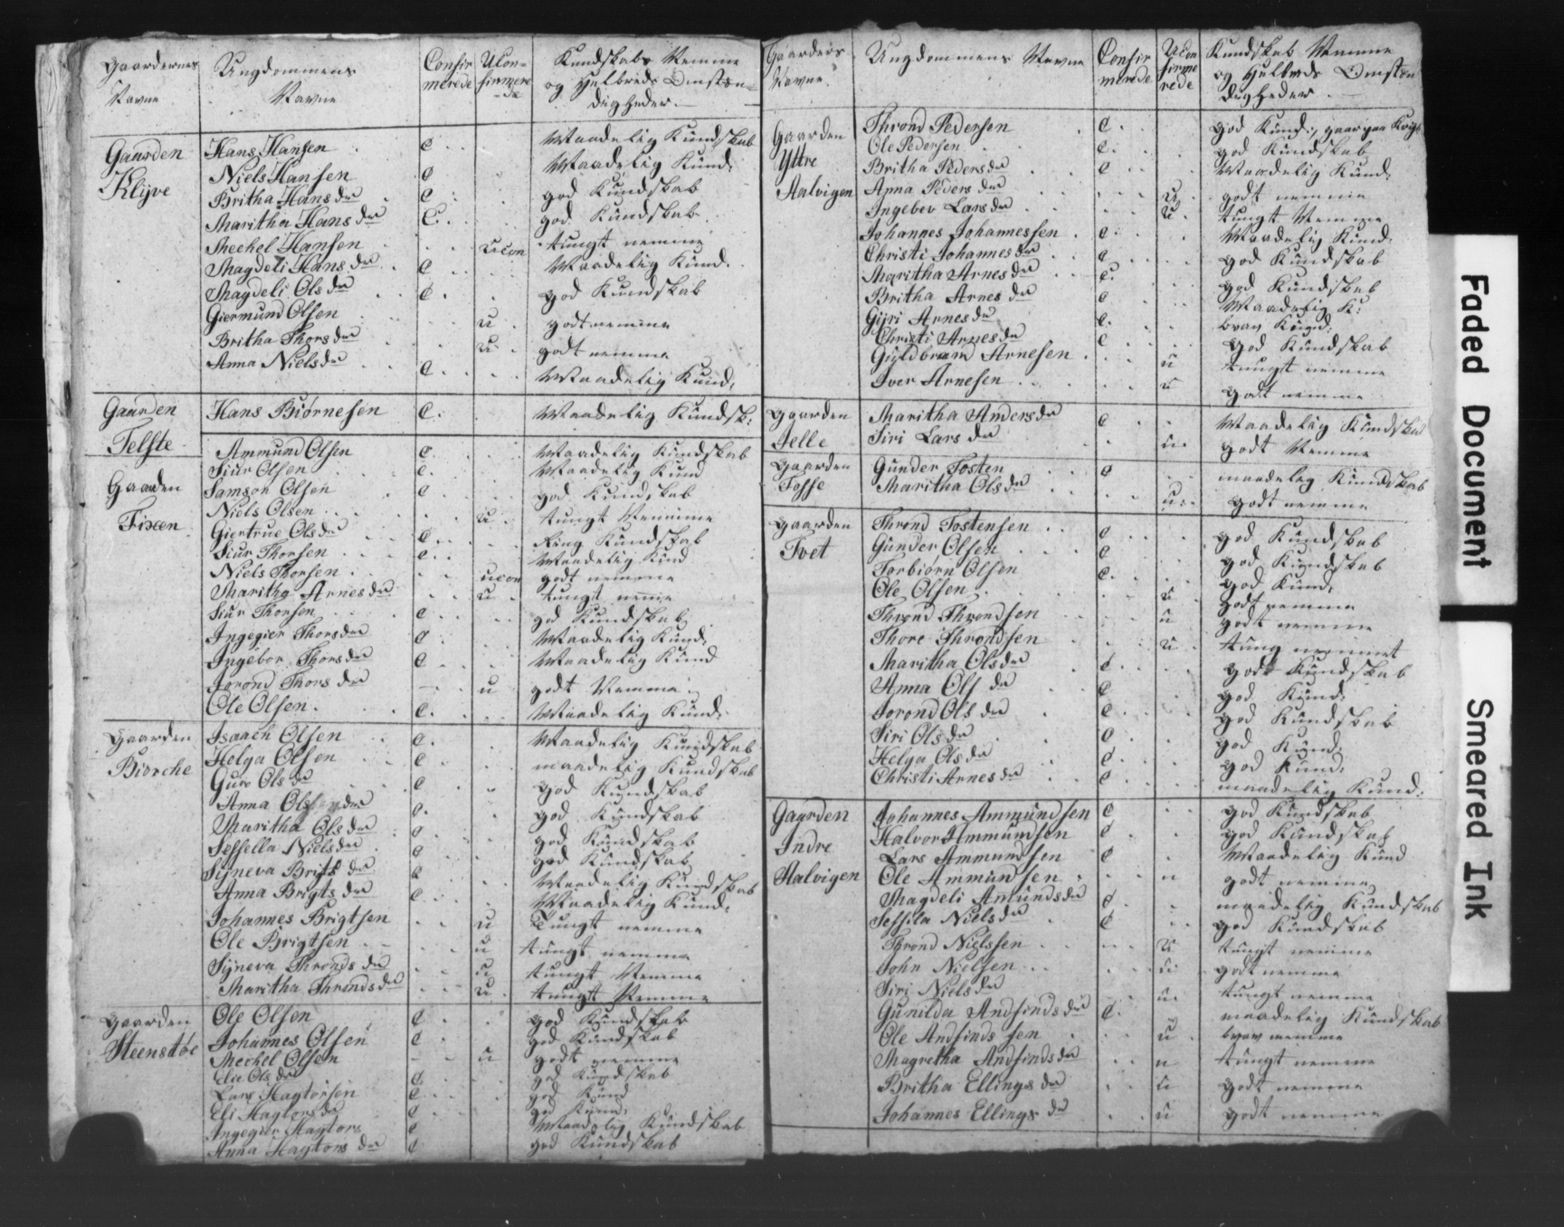 Gaardernes Navne Ungdommens Navne Confirmerede Uconfirmerede Kundskabs Nemme og Helbreds Omstændigheder
Gaarden Klyve
Hans Hansen c Maadelig Kundskab
Niels Hansen c Maadelig Kund:
Britha Hans dr c god Kundskab
Maritha Hans dr c god Kundskab
Meckel Hansen ucon tungt nemme
Magdeli Hans dr c Maadelig Kund.
Magdeli Ols dr c god Kundskab
Giermund Olsen u godt nemme
Britha Thors dr u godt nemme
Anna Niels dr c Maadelig Kund,
Gaarden Telfte
Hans Biørnesen c Maadelig Kundsk:
Gaarden Fixen
Ammund Olsen c Maadelig Kundskab
Siur Olsen c Maadelig Kund
Samson Olsen c god Kundskab
Niels Olsen u tungt Nemme
Giertrue Ols dr c Ring Kundskab
Siur Thorsen c Maadelig Kund
Niels Thorsen ucon godt nemme
Maritha Arnes dr u tungt nemme
Siur Thorsen c god Kundskab
Ingegier Thors dr c Maadelig Kund,
Ingebor Thors dr c Maadelig Kund
Torond Thors dr u godt Nemme
Ole Olsen c Maadelig Kund,
Gaarden Biorche
Isaach Olsen c Maadelig Kundskab
Helga Olsen c maadelig Kundskab
Guro Ols dr c god Kundskab
Anna Ols dr c god Kundskab
Maritha Ols dr c god Kundskab
Sessella Niels dr c god Kundskab
Syneva Brigts dr c Maadelig Kundskab
Anna Brigts dr c Maadelig Kund,
Johannes Brigtsen u Tungt nemme
Ole Brigtsen u tungt nemme
Syneva Thronds dr u tungt Nemme
Maritha Thronds dr u tungt Nemme
Gaarden Steenstøe
Ole Olsen c god Kundskab
Johannes Olsen c god Kundskab
Meckel Olsen u godt nemme
Ols dr c god Kundskab
Lars Hagtorsen c god Kund
Eli Hagtors dr c god Kund,
Ingegier Hagtors c Maadelig Kundskab
Anna Hagtors dr c god Kundskab
Gaardens Navne Ungdommens Navne Confirmerede Uconfirmerede Kundskab Nemme og Helbreds Omstændigheder
Gaarden Yttre Aalvigen
Thrond Pedersen c god Kund:
Ole Pedersen c god Kundskab
Britha Peders dr c Maadelig Kund,
Anna Peders dr u godt nemme
Ingebor Lars dr u tungt Nemme
Johannes Johannessen c Maadelig Kund.
Christi Johannes dr c god Kundskab
Maritha Arnes dr c god Kundskab
Britha Arnes dr c Maadelig K:
Gyri Arnes dr c brav Kund:
Christi Arnes dr c god Kundskab
Guldbrand Arnesen u tungt nemme
Iver Arnesen u godt nemme
Gaarden Jelle
Maritha Anders dr c Maadelig Kundskab
Siri Lars dr u godt Nemme
Gaarden Fosse
Gunder Tosten c maadelig Kundskab
Maritha Ols dr u godt nemme
Gaarden Tvet
Thrond Tostensen c god Kundskab
Gunder Olsen c god Kundskab
Torbiorn Olsen c god Kund,
Ole Olsen u godt nemme
Thrond Throndsen u godt nemme
Thore Throndsen u tung nemmet
Maritha Ols dr c godt Kundskab
Anna Ols dr c god Kund:
Torond Ols dr c god Kundskab
Siri Ols dr c god Kund:
Helga Ols dr c god Kund,
Christi Arnes dr c maadelig Kund:
Gaarden Indre Aalvigen
Johannes Ammundsen c god Kundskab
Halvor Ammundsen c god Kundskab
Lars Ammundsen c Maadelig Kund
Ole Ammundsen u godt nemme
Magdeli Amunds dr c maadelig Kundskab
Sessila Niels dr c god Kundskab
Thrond Nielssen u tungt nemme
John Nielsen u godt nemme
Siri Niels dr u tungt nemme
Gunilda Andfinds dr c maadelig Kundskab
Ole Andfindssen u brav nemme
Magretha Andfinds dr u tungt nemme
Britha Ellings dr u godt nemme
Johannes Ellings dr u godt nemme
Faded Document
Smeared Ink